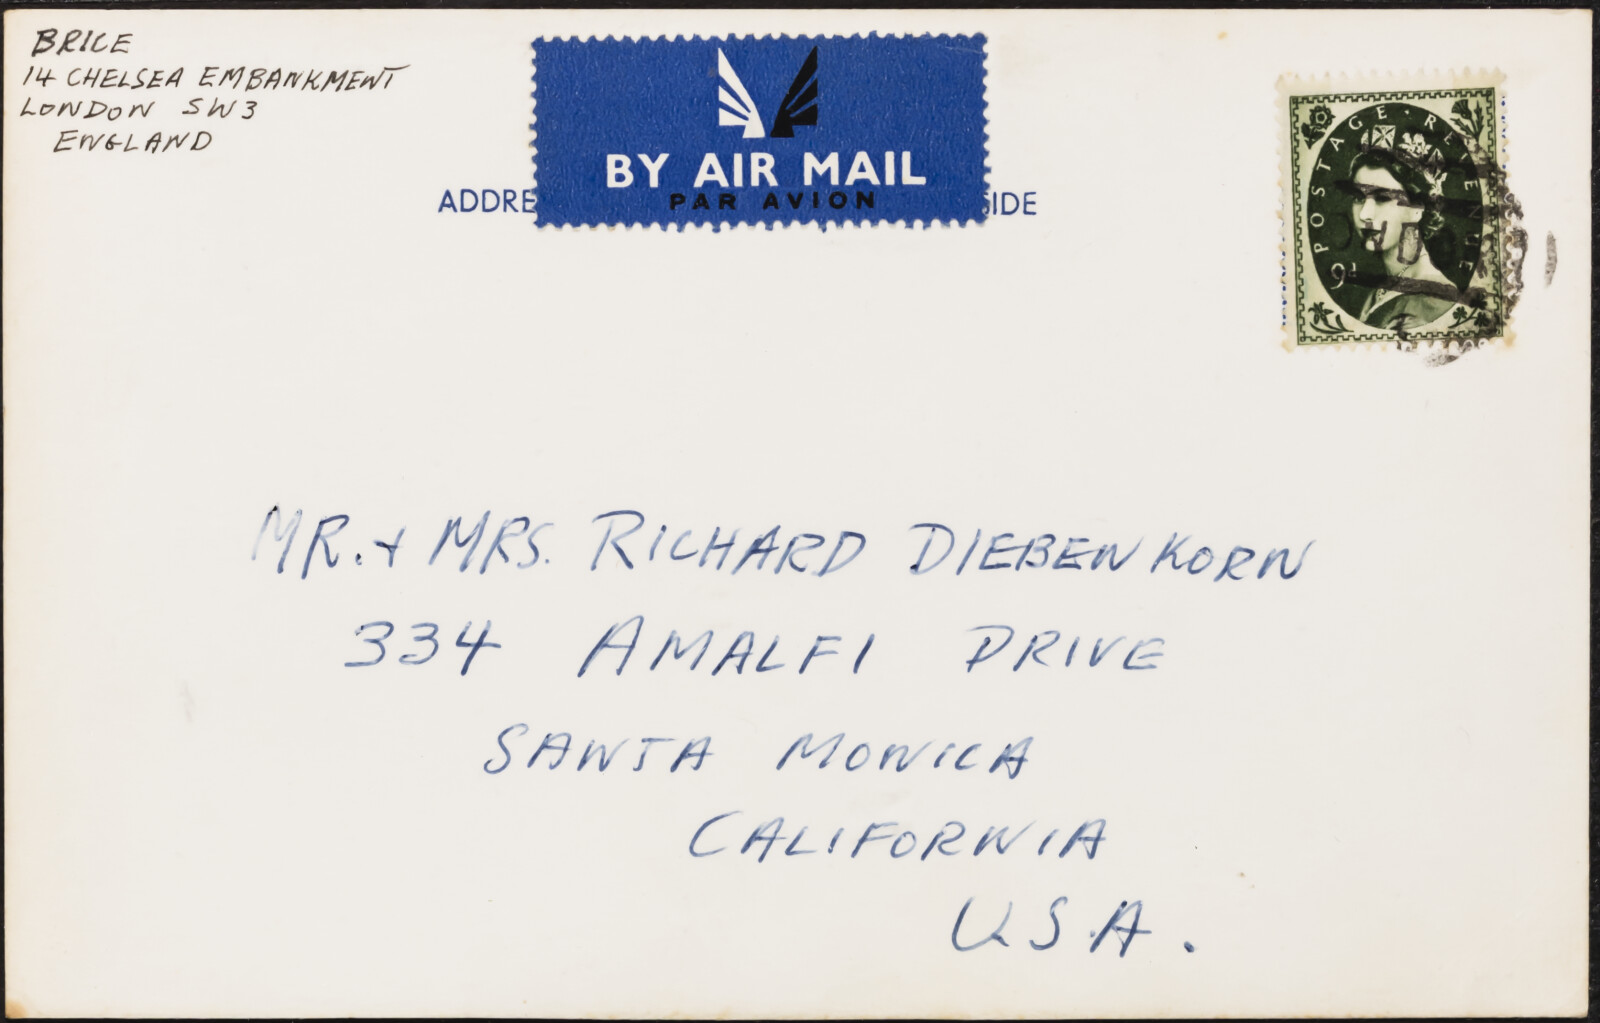 BRICE
14 CHELSEA EMBANKMENT
LONDON SW3
ENGLAND
BY AIR MAIL
PAR AVION
ADDRE SIDE
POSTAGE · REVENUE
9d
MR. + MRS. RICHARD DIEBENKORN
334 AMALFI DRIVE
SANTA MONICA
CALIFORNIA
U.S.A.